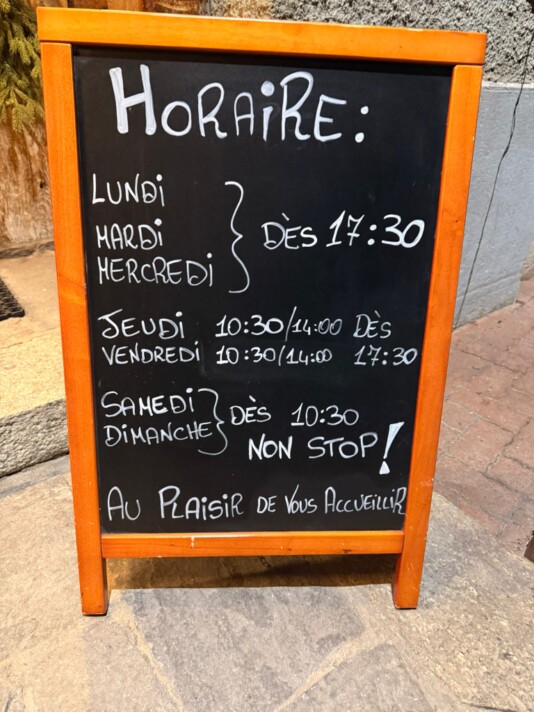 HORAIRE:
LUNDI
MARDI
MERCREDI
DÈS 17:30
JEUDI 10:30/14:00 DÈS
VENDREDI 10:30/14:00 17:30
SAMEDI
DIMANCHE
DÈS 10:30
NON STOP!
AU PLAISIR DE VOUS ACCUEILLIR